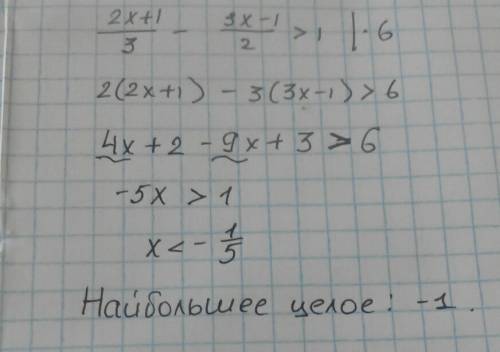 (2x+1)/3 - (3x-1)/2 > 1 | · 6
2(2x+1) - 3(3x-1) > 6
4x + 2 - 9x + 3 > 6
-5x > 1
x < - 1/5
Наибольшее целое: -1.